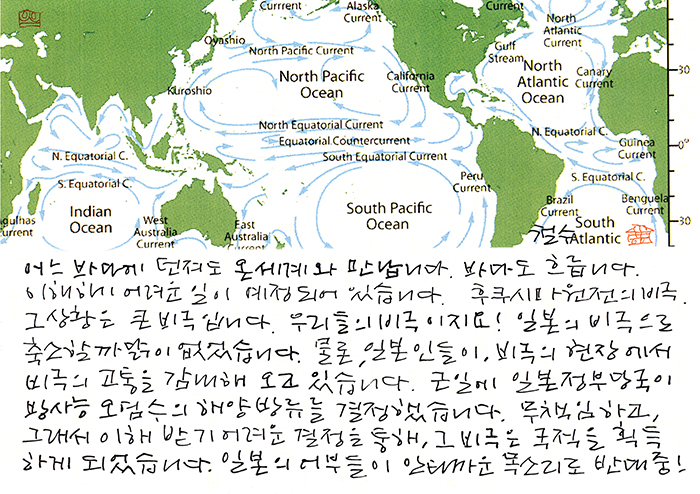 Current
Alaska
Current
North
Atlantic
Current
Oyashio
North Pacific Current
Gulf
Stream
North Pacific
Ocean
California
Current
North
Atlantic
Ocean
Canary
Current
30
Kuroshio
North Equatorial Current
Equatorial Countercurrent
South Equatorial Current
N. Equatorial C.
Guinea
Current
0°
N. Equatorial C.
S. Equatorial C.
Peru
Current
S. Equatorial C.
Indian
Ocean
West
Australia
Current
East
Australia
Current
South Pacific
Ocean
Brazil
Current
Benguela
Current
Agulhas
Current
South
Atlantic
30
철수
어느 바다에 던져도 온세계와 만납니다. 바다도 흐릅니다.
이해하기 어려운 일이 예정되어 있습니다. 후쿠시마원전의 비극.
그 상황은 큰 비극입니다. 우리들의 비극이지요! 일본의 비극으로
축소할 까닭이 없었습니다. 물론, 일본인들이, 비극의 현장에서
비극의 고통을 감내해 오고 있습니다. 근일에 일본정부당국이
방사능 오염수의 해양방류를 결정했습니다. 무책임하고,
그래서 이해 받기 어려운 결정을 통해, 그 비극은 국적을 획득
하게 되었습니다. 일본의 어부들이 안타까운 목소리로 반대중!